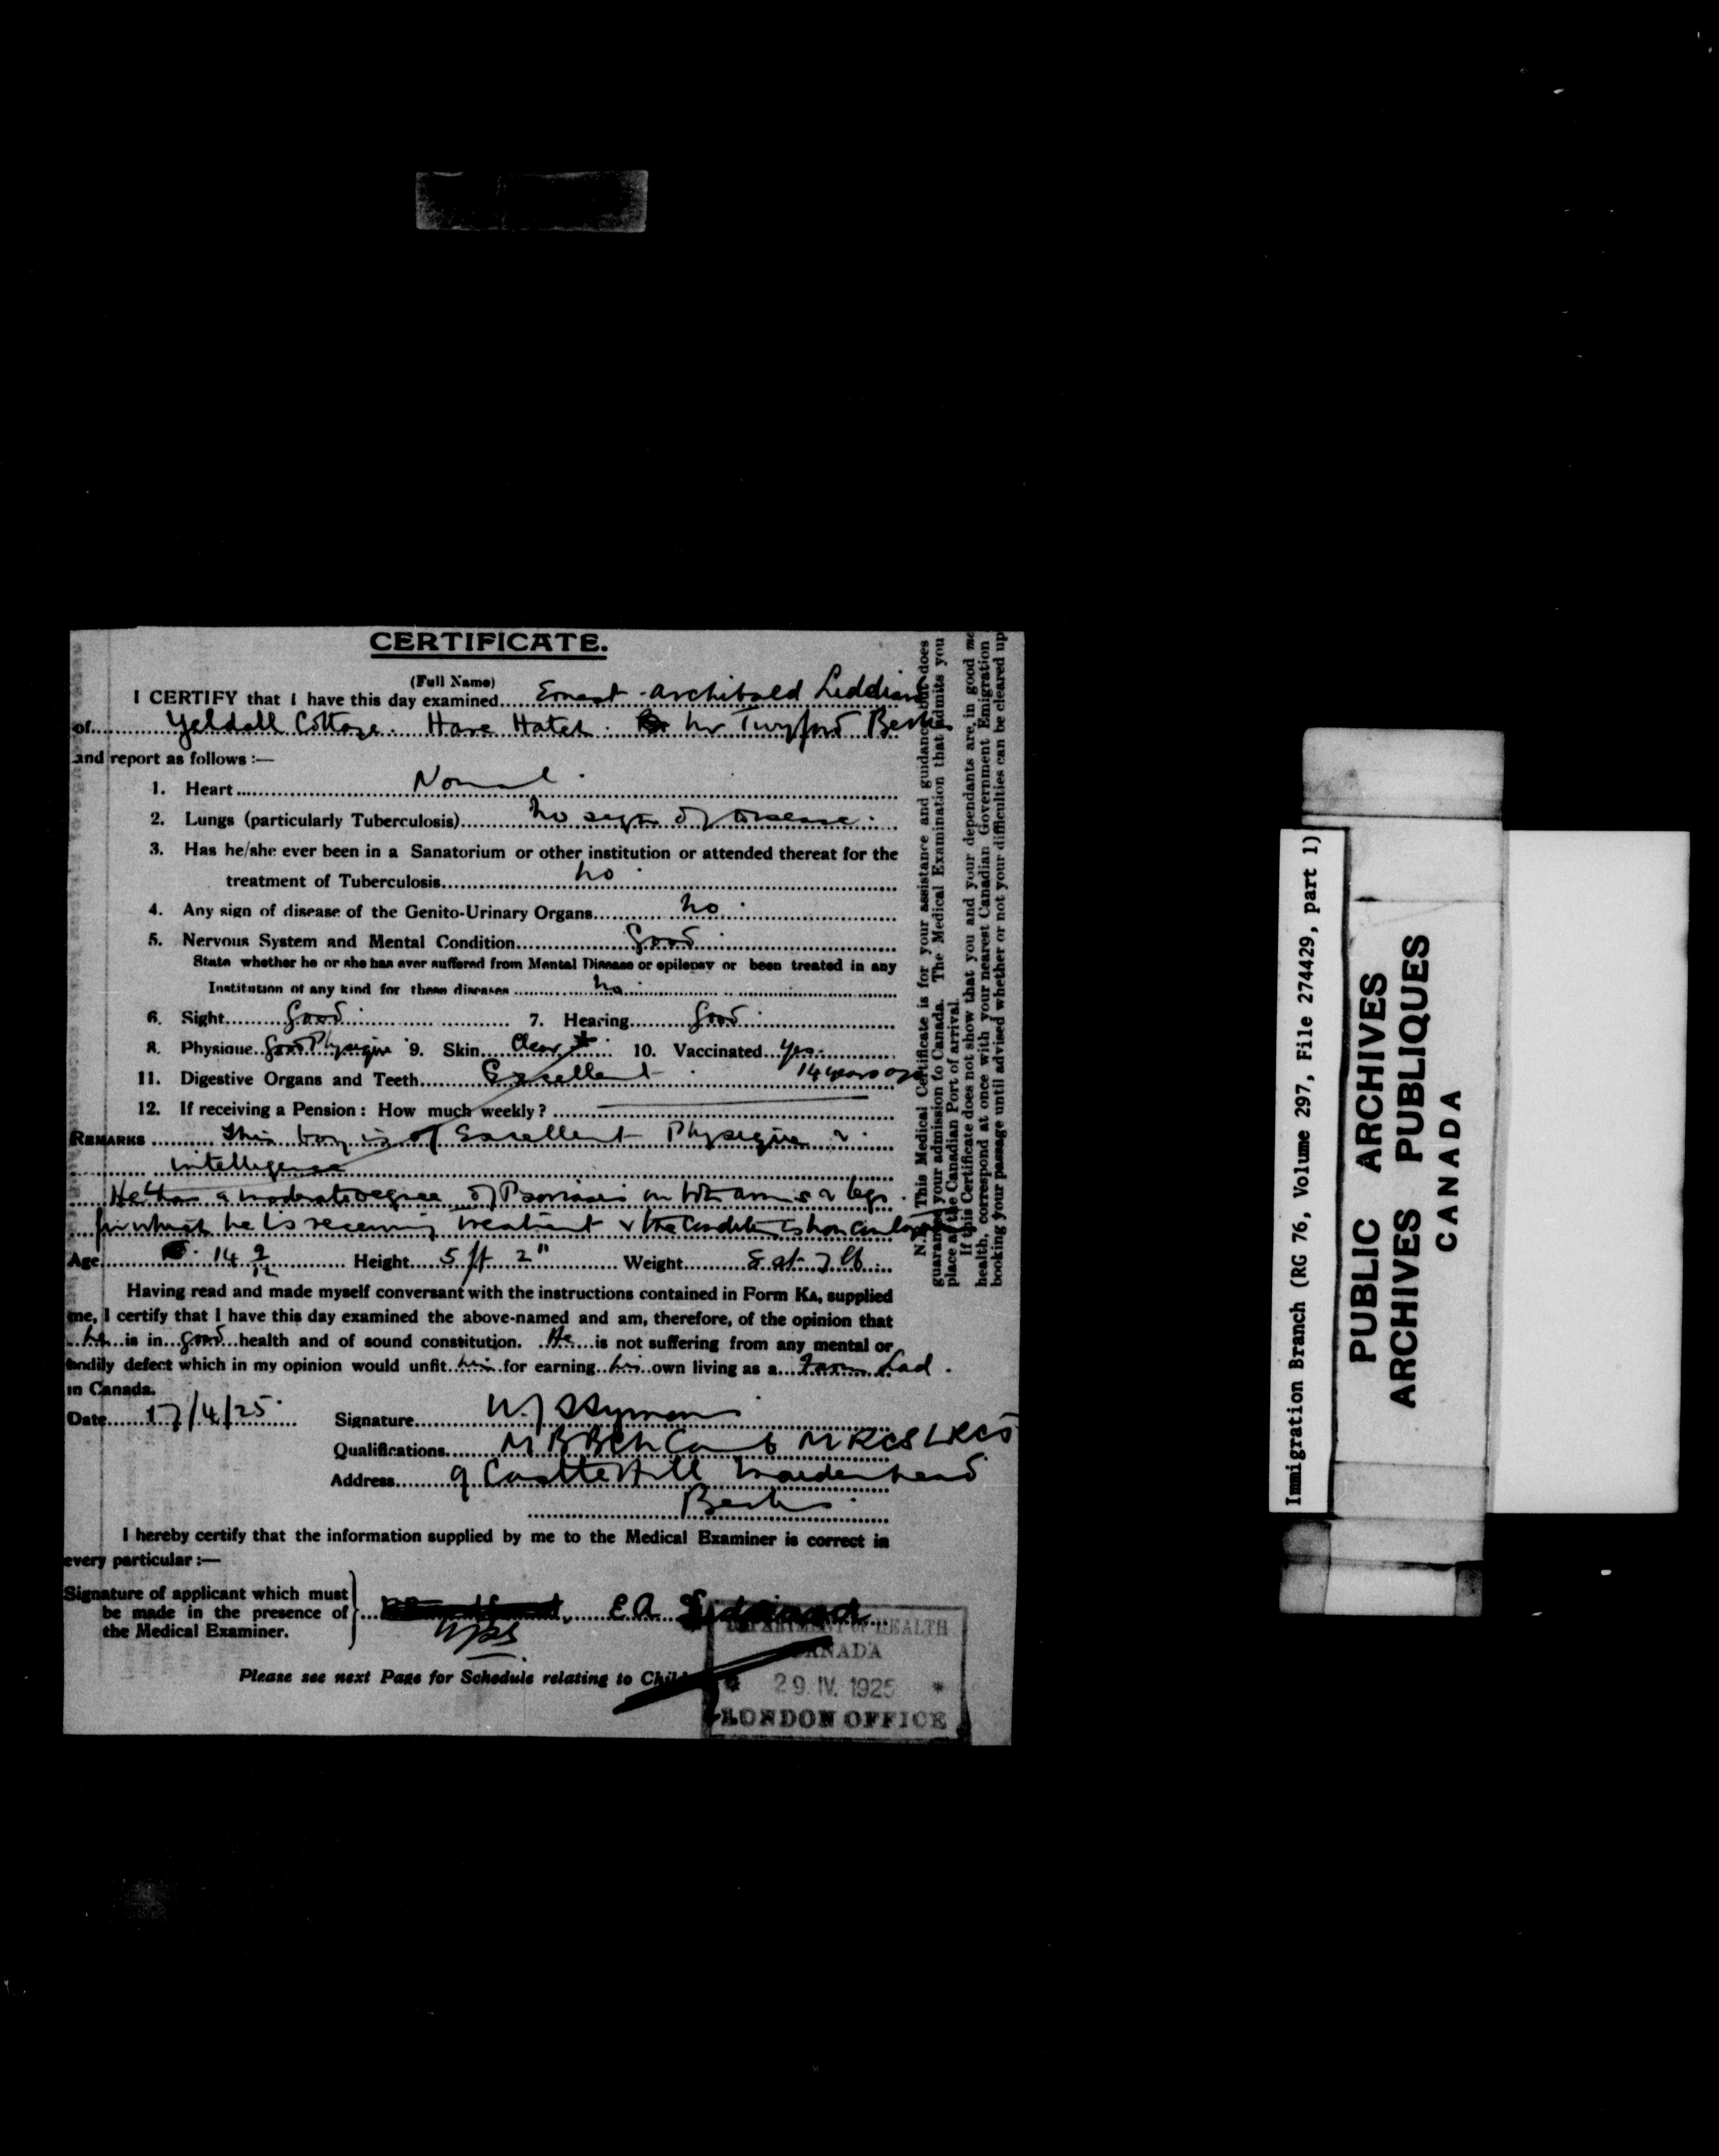 CERTIFICATE.
(Full Name)
I CERTIFY that I have this day examined Ernest Archibald Liddiard
of Yeldall Cottage. Hare Hatch. Nr Twyford Berks
and report as follows :—
1. Heart Normal
2. Lungs (particularly Tuberculosis) No sign of Disease.
3. Has he/she ever been in a Sanatorium or other institution or attended thereat for the
treatment of Tuberculosis No
4. Any sign of disease of the Genito-Urinary Organs No
5. Nervous System and Mental Condition Good
State whether he or she has ever suffered from Mental Disease or epilepsy or been treated in any
Institution of any kind for these diseases No
6. Sight Good 7. Hearing Good
8. Physique Good Physique 9. Skin Clear * 10. Vaccinated Yes.
11. Digestive Organs and Teeth Excellent 14 years ago
12. If receiving a Pension : How much weekly ?
REMARKS This boy is of Excellent Physique &
intelligence
He has a moderate degree of Psoriasis on both arms & legs.
for which he is receiving treatment & the condition is non contagious
Age 14 9/12 Height 5 ft 2" Weight 8 st 7 lb
Having read and made myself conversant with the instructions contained in Form KA, supplied
me, I certify that I have this day examined the above-named and am, therefore, of the opinion that
he is in good health and of sound constitution. He is not suffering from any mental or
bodily defect which in my opinion would unfit him for earning his own living as a Farm Lad.
in Canada.
Date 17/4/25 Signature
Qualifications M B BCh Camb MRCS LRCS
Address 9 Castle Hill Maidenhead
Berks.
I hereby certify that the information supplied by me to the Medical Examiner is correct in
every particular :—
Signature of applicant which must
be made in the presence of
the Medical Examiner.
E A Liddiard
Please see next Page for Schedule relating to Child
DEPARTMENT OF HEALTH
CANADA
* 29. IV. 1925 *
LONDON OFFICE
N.B. This Medical Certificate is for your assistance and guidance but does
guarantee your admission to Canada. The Medical Examination that admits you
place at the Canadian Port of arrival.
If this Certificate does not show that you and your dependants are in good me
health, correspond at once with your nearest Canadian Government Emigration
booking your passage until advised whether or not your difficulties can be cleared up
Immigration Branch (RG 76, Volume 297, File 274429, part 1)
PUBLIC ARCHIVES
ARCHIVES PUBLIQUES
CANADA